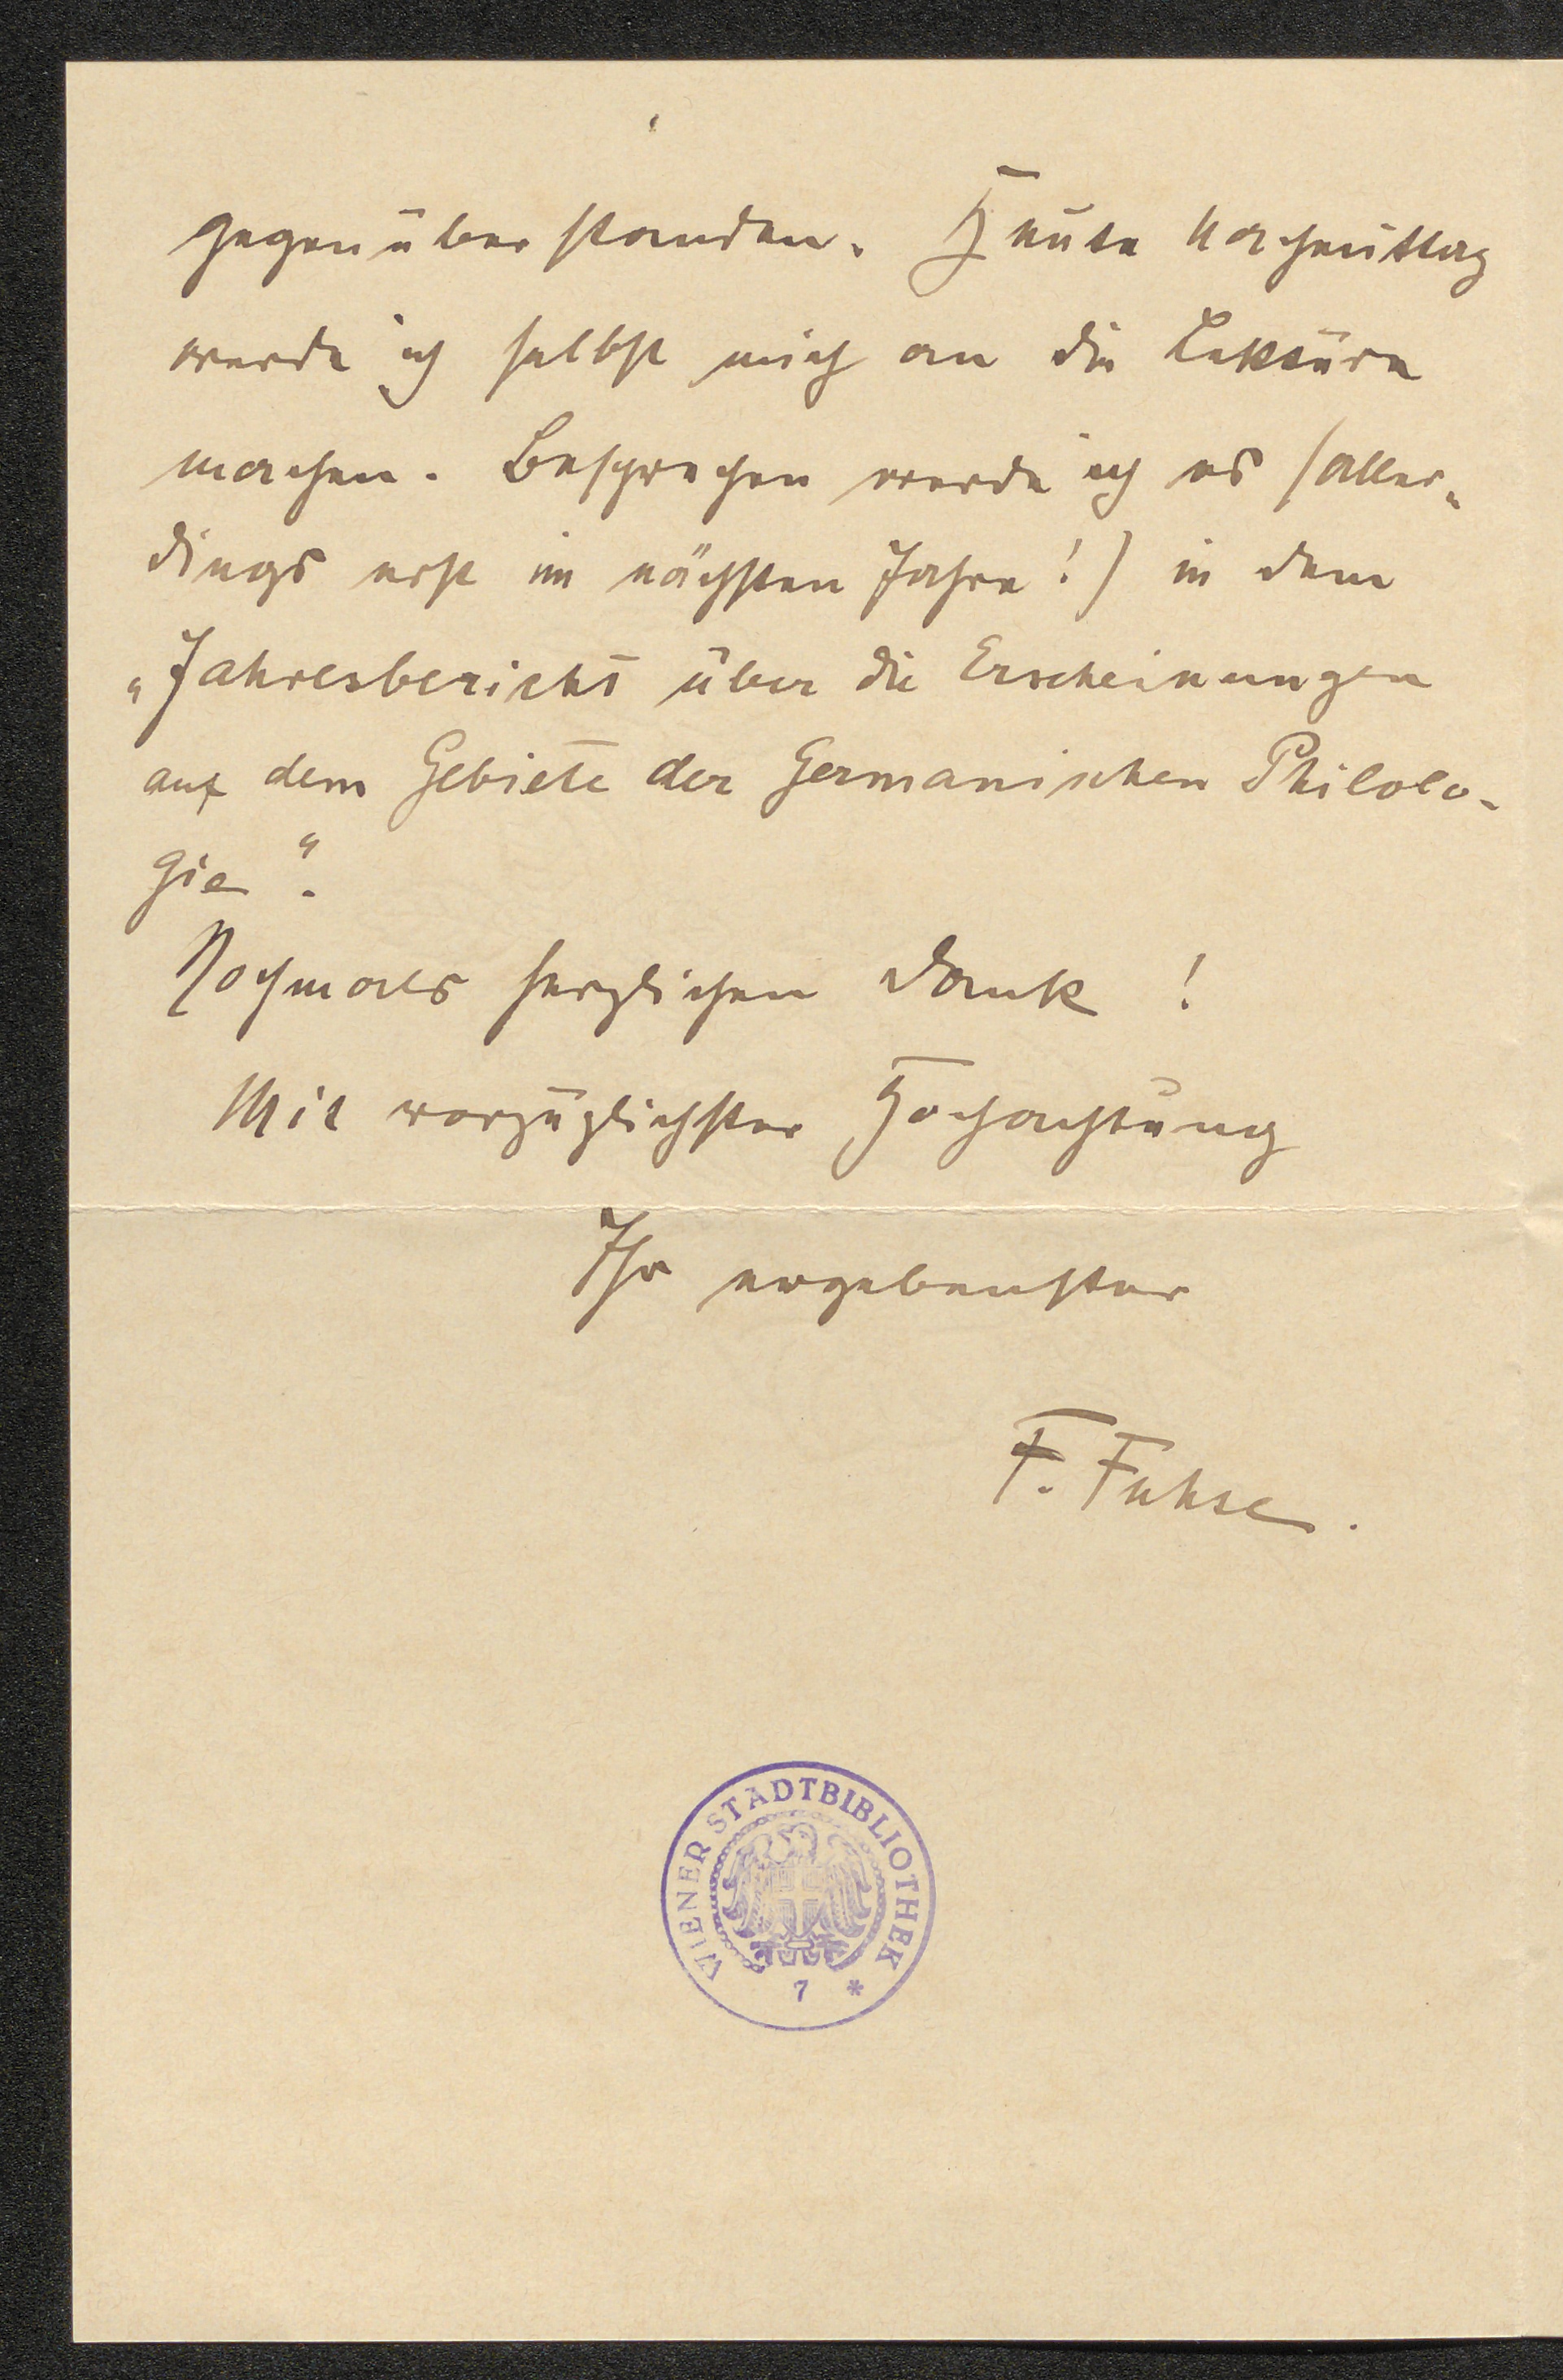 gegenüberstanden. Heute Nachmittag
werde ich selbst mich an die Lektüre
machen. Besprechen werde ich es (aller-
dings erst im nächsten Jahre!) in dem
„Jahresbericht über die Erscheinungen
auf dem Gebiete der Germanischen Philolo-
gie“.
Nochmals herzlichen Dank!
Mit vorzüglichster Hochachtung
Ihr ergebenster
F. Fuhse.
WIENER STADTBIBLIOTHEK
7 *